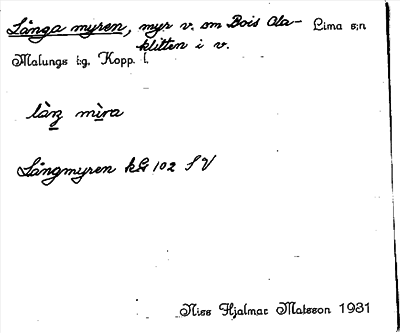 Långa myren, myr v. om Bois Ola- Lima s:n
klitten i v.
Malungs t:g. Kopp. l.
làŋ mìra
Långmyren kG 102 SV
Niss Hjalmar Matsson 1931